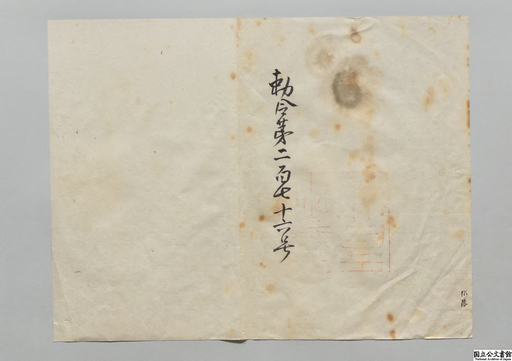 勅令第二百七十六号
国立公文書館
National Archives of Japan